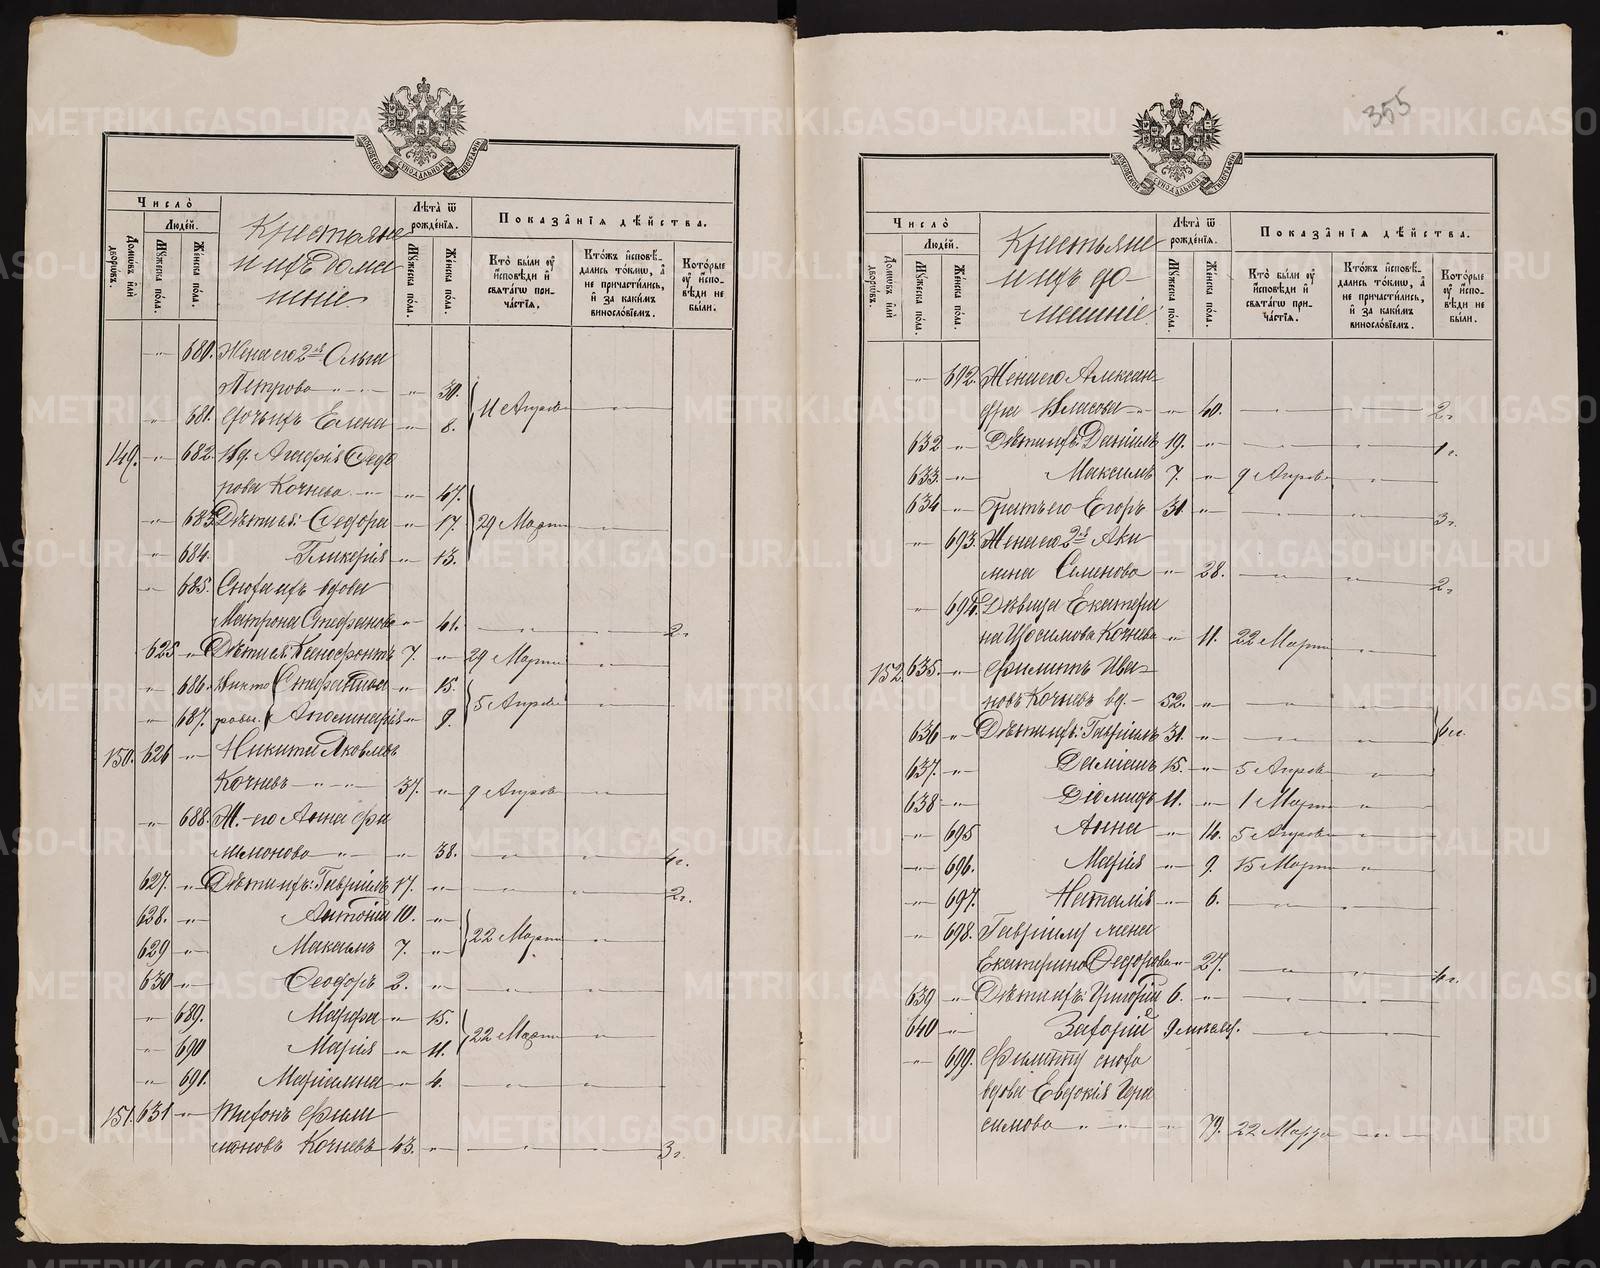 355
Число̀
Людей.
Домовъ или дворовъ.
Мужеска пола.
Женска пола.
Крестьяне
и ихъ дома
шніе
Лѣта ѿ рожденія.
Мужеска пола.
Женска пола.
Показанія дѣйства.
Кто были оу исповѣди и святагѡ причастія.
Ктожъ исповѣдались токмѡ, а не причастились, и за какимъ винословіемъ.
Которые оу исповѣди не были.
-"- 680. Жена его 2я Ольга
Петрова -"- 30.
-"- 681. Дочь ихъ Елена -"- 8. } 11 Апрѣля -"-
149. -"- 682. Вд. Агафія Ѳедо
рова Кочнева -"- -"- 47.
-"- 683. Дѣти ея: Ѳедора -"- 17. } 29 Марта -"-
-"- 684. Гликерія -"- 13.
-"- 685. Сноха ихъ вдова
Матрона Стефанова -"- 41. -"- -"- 2г.
625 -"- Дѣти ея: Ксенофонтъ 7. -"- 29 Марта -"-
-"- 686. Стефанида -"- 15.
-"- 687. Аполинарія -"- 9. } 5 Апрѣля -"-
150. 626 -"- Никита Яковлевъ
Кочневъ -"- -"- 37. -"- 9 Апрѣля -"-
-"- 688. Ж.-его Анна Фи
лимонова -"- -"- 38. -"- -"- 4г.
627. -"- Дѣти ихъ: Гавріилъ 17. -"- -"- -"- 2г.
628. -"- Антоній 10. -"-
629 -"- Максимъ 7. -"- } 22 Марта -"-
630 -"- Ѳеодоръ 2. -"- -"- -"-
-"- 689. Марфа -"- 15.
-"- 690 Марія -"- 11. } 22 Марта -"-
-"- 691. Маріамна -"- 4. -"- -"-
151. 631 -"- Тихонъ Фили
моновъ Кочневъ 43. -"- -"- -"- 3г.
Число̀
Людей.
Домовъ или дворовъ.
Мужеска пола.
Женска пола.
Крестьяне
и ихъ до-
машніе
Лѣта ѿ рожденія.
Мужеска пола.
Женска пола.
Показанія дѣйства.
Кто были оу исповѣди и святагѡ причастія.
Ктожъ исповѣдались токмѡ, а не причастились, и за какимъ винословіемъ.
Которые оу исповѣди не были.
-"- 692. Жена его Алексан-
дра Власова -"- -"- 40. -"- -"- 2г.
632 -"- Дѣти ихъ: Даніилъ 19. -"- -"- -"- 1г.
633. -"- Максимъ 7. -"- 9 Апрѣля -"-
634 -"- Братъ его Егоръ 31. -"- -"- -"- 3г.
-"- 693. Жена его 2я Аки
лина Семенова -"- 28. -"- -"- 2г.
-"- 694. Дѣвица Екатери
на Изосимова Кочнева -"- 11. 22 Марта -"-
152. 635. -"- Филиппъ Ива-
новъ Кочневъ вд. - 52. -"- -"- -"-
636 -"- Дѣти ихъ: Гавріилъ 31. -"- -"- -"- } 4г.
637. -"- Даміанъ 15. -"- 5 Апрѣля -"-
638 -"- Діомидъ 11. -"- 1 Марта -"-
-"- 695 Анна -"- 14. 5 Апрѣля -"-
-"- 696. Марія -"- 9. 15 Марта -"-
-"- 697. Наталія -"- 6. -"- -"-
-"- 698. Гавріилу жена
Екатерина Ѳедорова -"- 27. -"- -"- 4г.
639 -"- Дѣти ихъ: Григорій 6. -"- -"- -"-
640 -"- Захарій 9 мѣсяц. -"- -"-
-"- 699. Филиппу сноха
вдова Евдокія Гера
симова -"- -"- -"- 79. 22 Марта -"-
METRIKI.GASO-URAL.RU